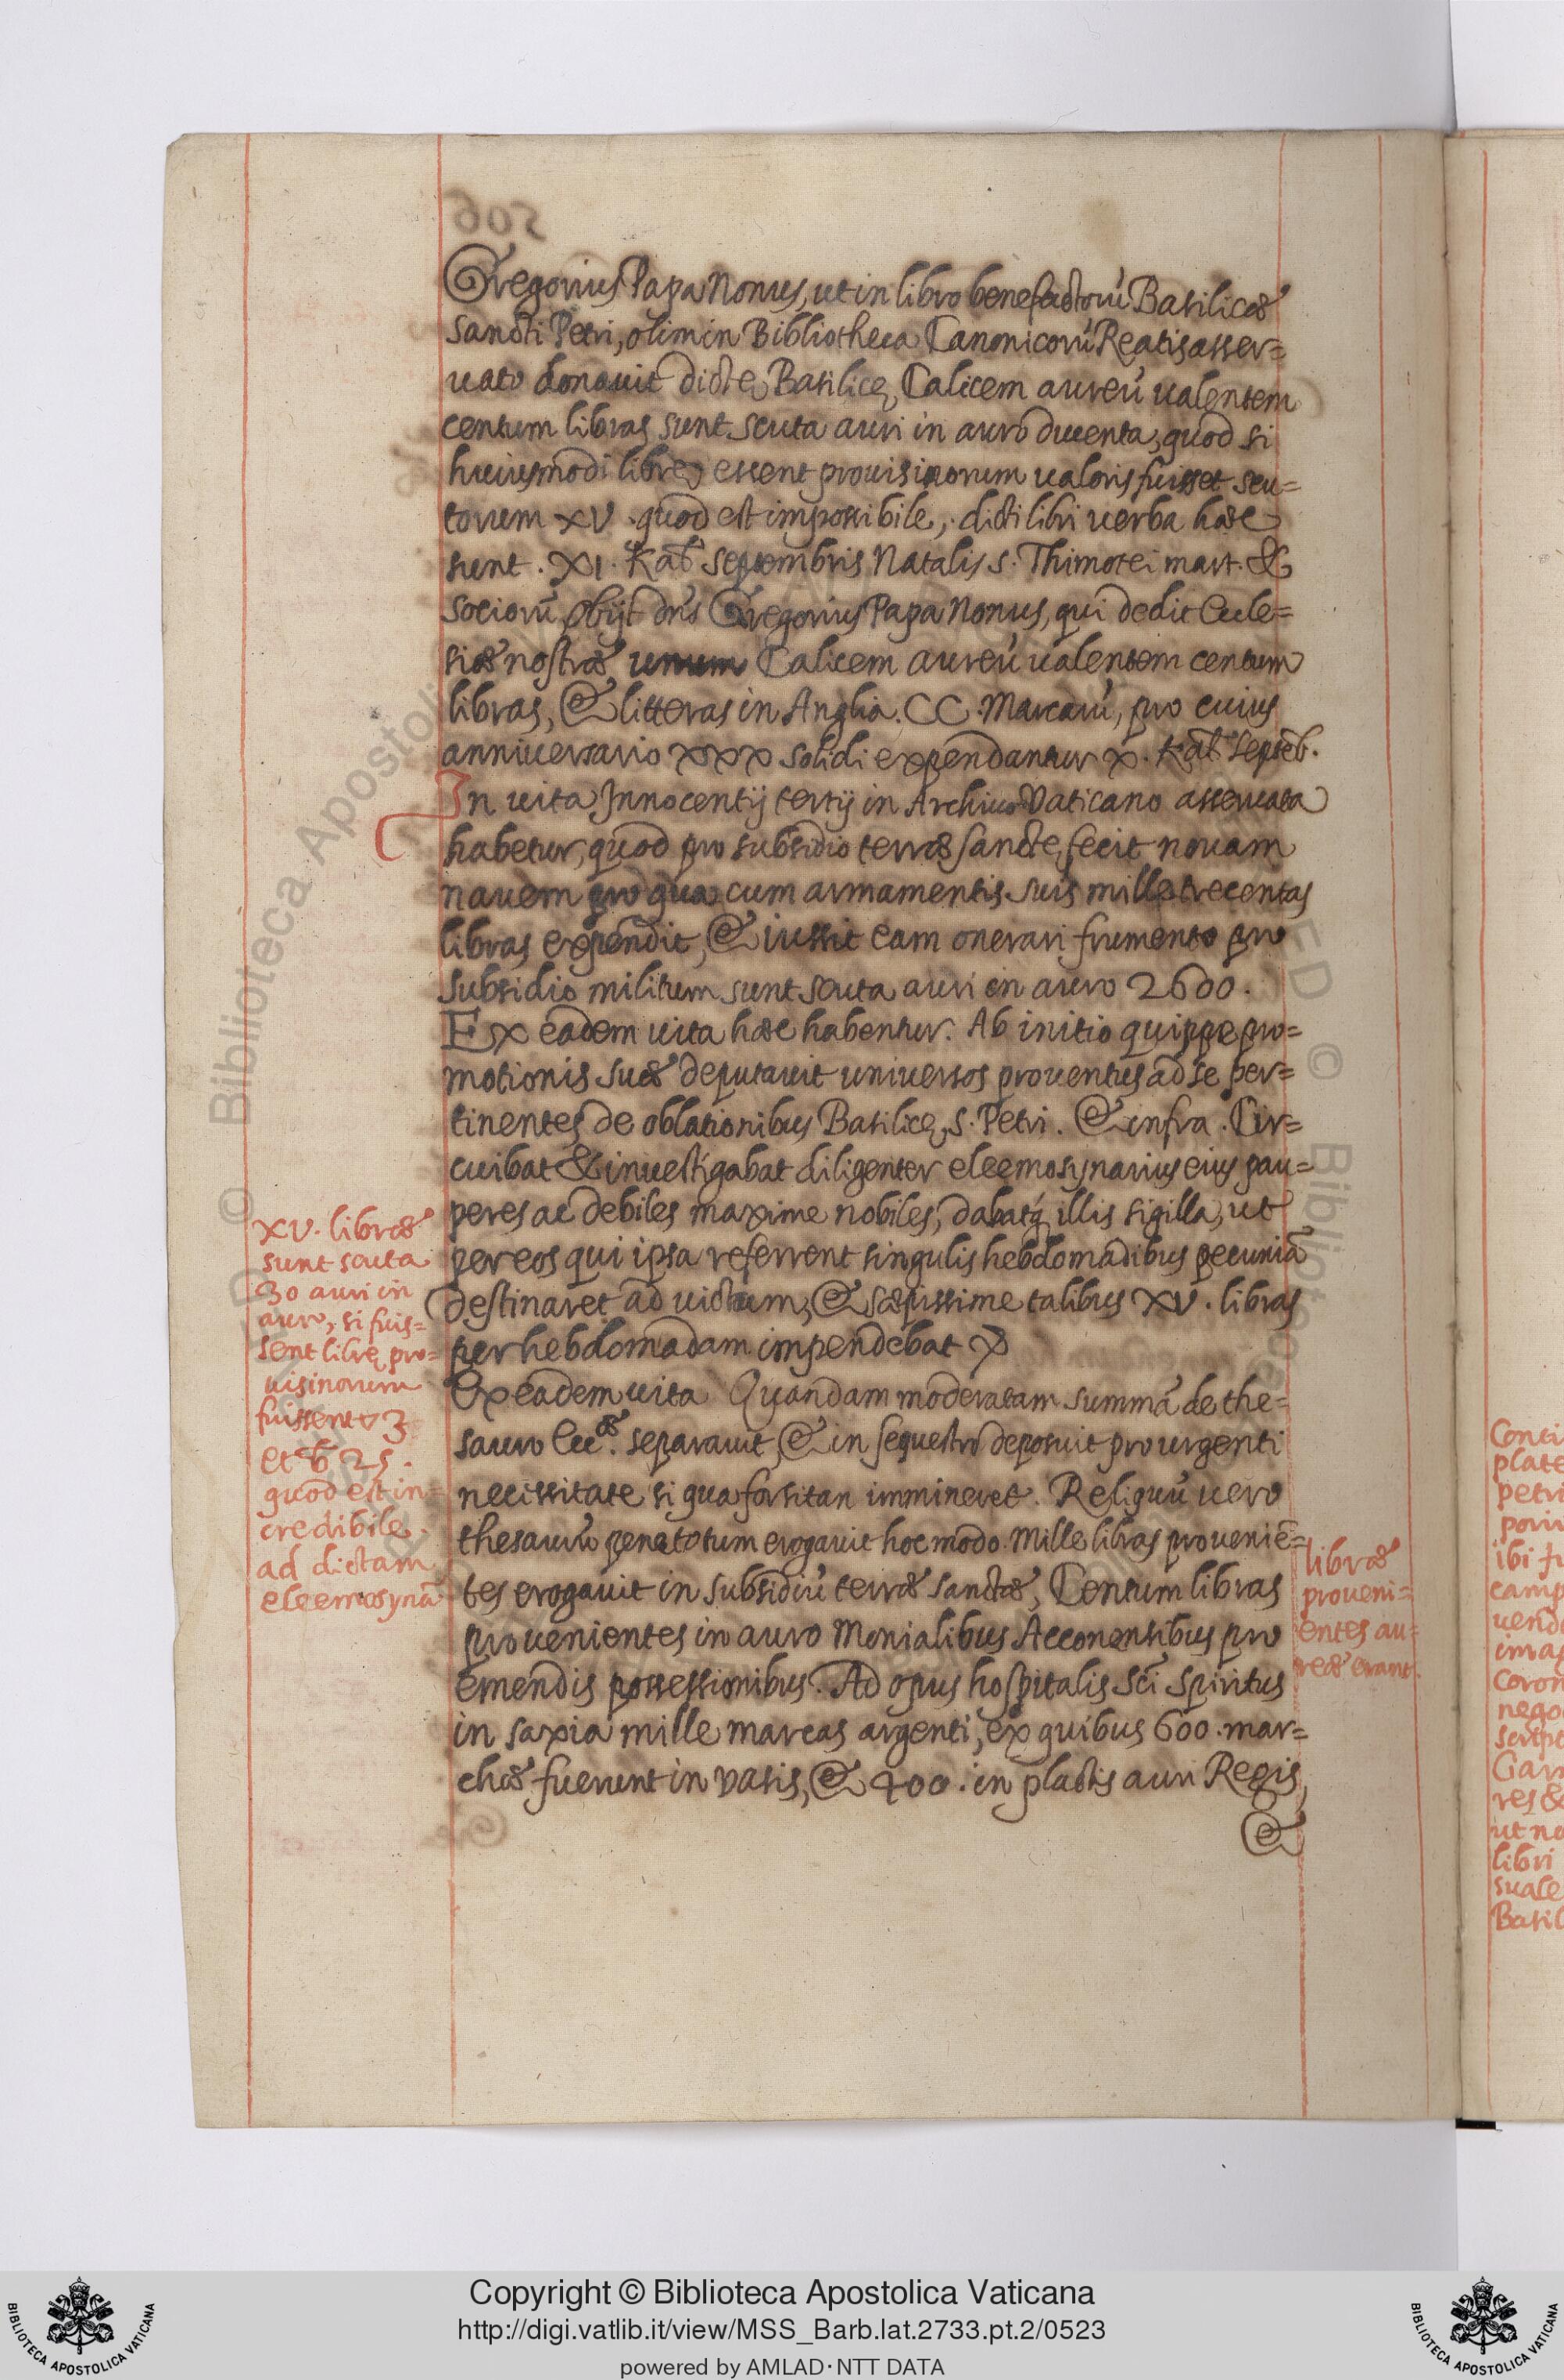 Gregorius Papa Nonus, ut in libro benefactorũ Basilicæ
Sancti Petri, olim in Bibliotheca Canonicorũ Reatis asser=
uato donauit dictę Basilicę, Calicem aureũ ualentem
centum libras sunt scuta auri in auro ducenta, quod si
huiusmodi librę essent prouisinorum ualoris fuisset scu=
torum XV. quod est impossibile, dicti libri uerba hæc
sunt. XI. Kal. Septembris Natalis S. Thimotei mart. &
Sociorũ, obijt dñs Gregorius Papa Nonus, qui dedit Eccle=
siæ nostræ unum Calicem aureũ ualentem centum
libras, & litteras in Anglia. CC. Marcarũ, pro cuius
anniuersario XXX solidi expendantur X. Kal. Septeb.
In uita Innocentij tertij in Archiuo Vaticano asseruata
habetur, quod pro subsidio terræ sanctę, fecit nouam
nauem pro qua cum armamentis suis mille trecentas
libras expendit, & iussit eam onerari frumento pro
subsidio militum sunt scuta auri in auro 2600.
Ex eadem uita hæc habentur. Ab initio quippe pro=
motionis suæ deputauit uniuersos prouentus ad se per=
tinentes de oblationibus Basilicę S. Petri. & infra. Cir=
cuibat & inuestigabat diligenter eleemosynarius eius pau=
peres ac debiles maxime nobiles, dabatq́ illis sigilla, ut
per eos qui ipsa referrent singulis hebdomadibus pecuniã
destinaret ad uictum, & sæpissime talibus XV. libras
per hebdomadam impendebat
Ex eadem uita Quandam moderatam summã de the=
sauro Ecc.æ separauit, & in sequestro deposuit pro urgenti
necissitate si qua forsitan immineret. Reliquũ uero
thesaurũ pene totum erogauit hoc modo. Mille libras prouenie=
tes erogauit in subsidiũ terræ sanctæ, Centum libras
prouenientes in auro Monialibus Acconensibus pro
emendis possessionibus. Ad opus hospitalis Scī Spiritus
in saxia mille marcas argenti, ex quibus 600. mar=
chæ fuerunt in vasis, & 400. in plactis auri Regis
&
XV. libræ
sunt scuta
30 auri in
auro, si fuis=
sent librę pro=
uisinorum
fuissent 3
et b 25.
quod est in=
credibile.
ad dictam
eleemosynã
libræ
proueni=
entes au=
reæ erant.
Copyright © Biblioteca Apostolica Vaticana
http://digi.vatlib.it/view/MSS_Barb.lat.2733.pt.2/0523
powered by AMLAD·NTT DATA
BIBLIOTECA APOSTOLICA VATICANA
BIBLIOTECA APOSTOLICA VATICANA